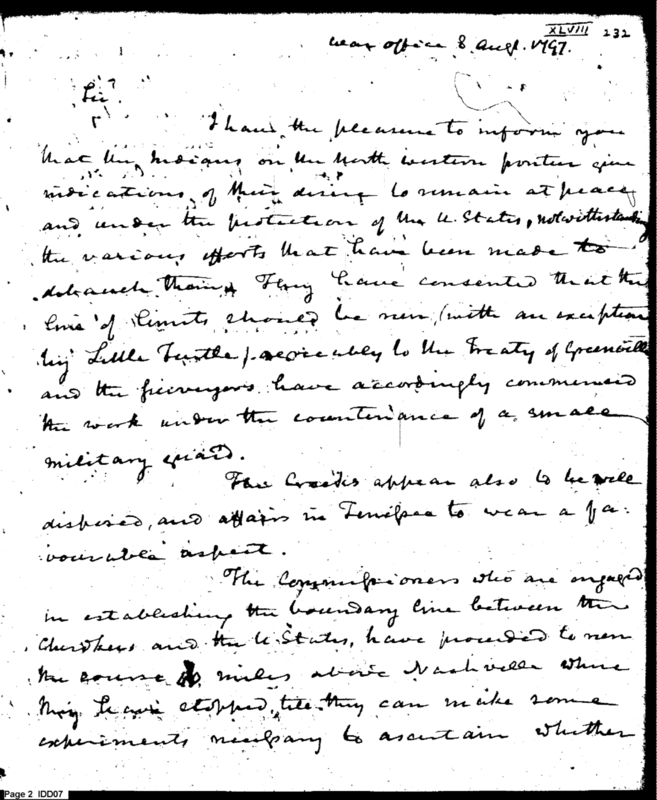 XLVIII 232
War office 8 Augt. 1797.
Sir
I have the pleasure to inform you
that the Indians on the North western frontier give
indications of their desire to remain at peace
and under the protection of the U. States, notwithstanding
the various efforts that have been made to
debauch them. They have consented that the
line of limits should be run (with an exception
by Little Turtle) agreeably to the Treaty of Greenville
and the surveyors have accordingly commenced
the work under the countenance of a small
military guard.
The Creeks appear also to be well
disposed, and affairs in Tenissee to wear a fa-
vourable aspect.
The Commissioners who are engaged
in establishing the boundary line between the
Cherokees and the U. States, have proceeded to run
the course miles above Nashville where
they have stopped, till they can make some
experiments necessary to ascertain whether
Page 2 IDD07